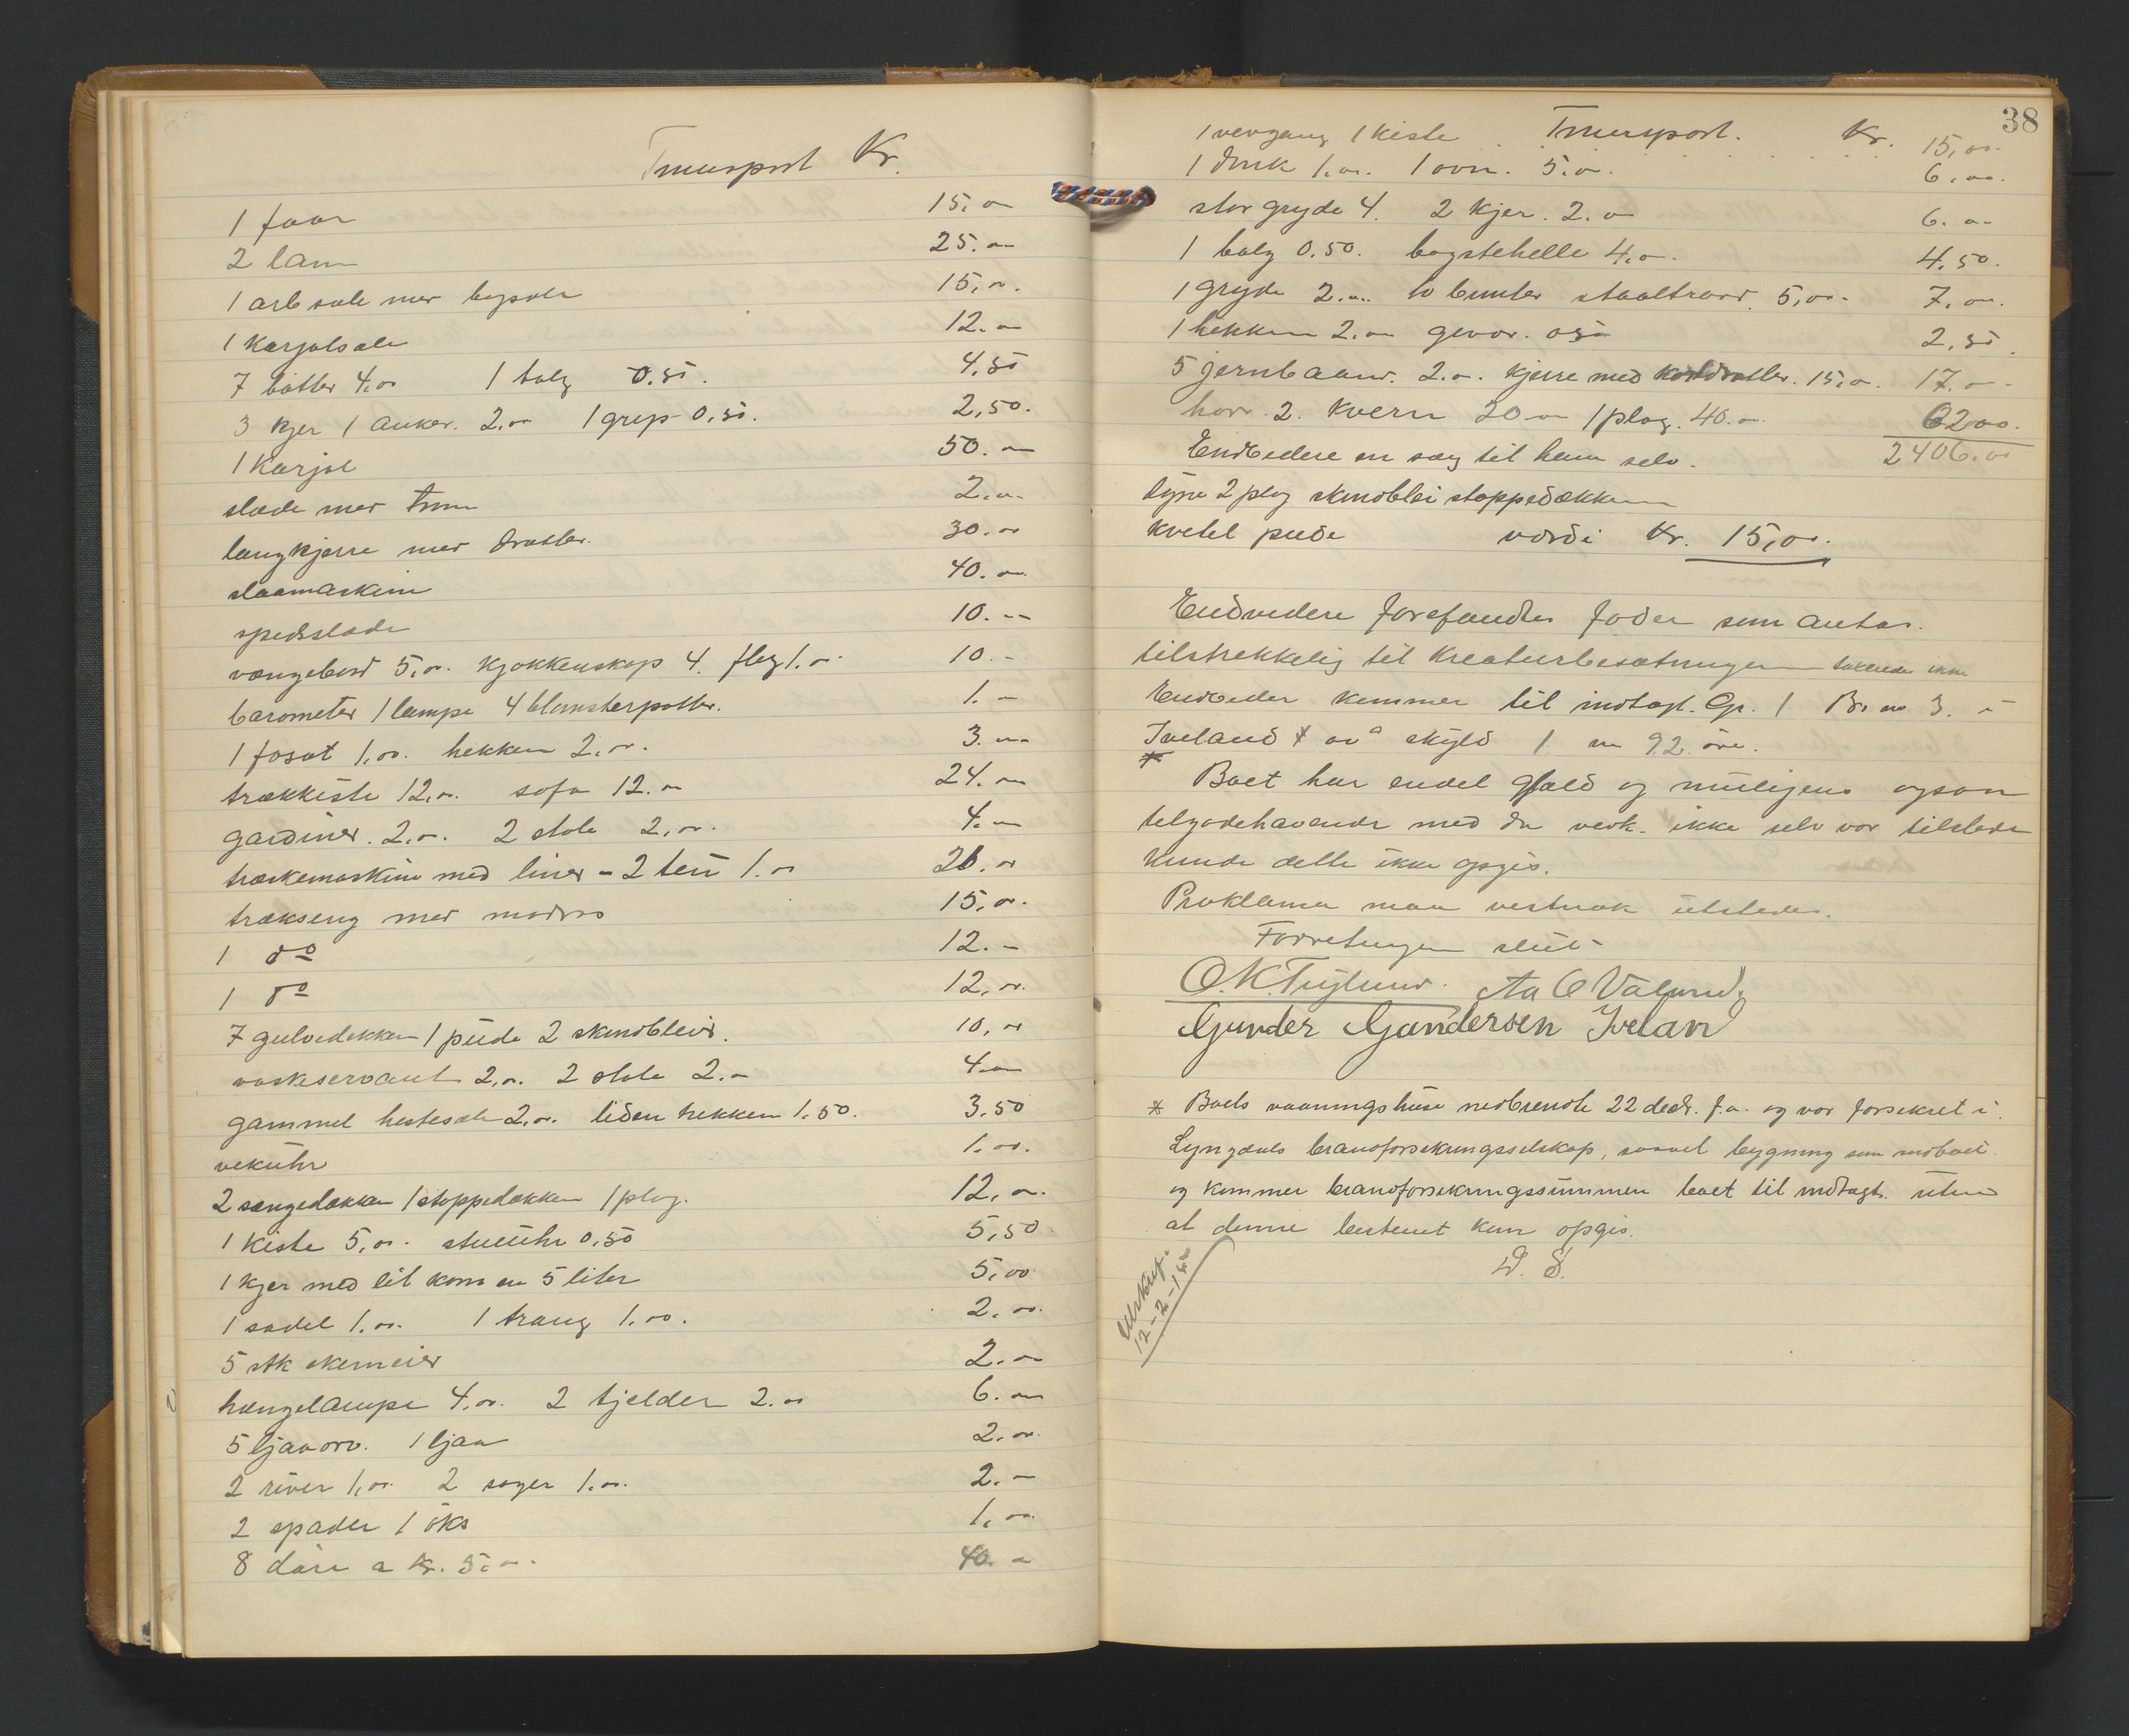 Transport Kr.
1 faar 15,00
2 lam 25.00
1 arb sele med bogsele 15,00.
1 Karjolsele 12.00
7 bøtter 4,00 1 balg 0.50. 4,50
3 kjer 1 anker. 2,00 1 grep 0,50. 2,50.
1 Karjol 50.00
slæde med 2.00
langkjerre med drætter. 30.00
slaamaskin 40.00
spedslæde 10.--
vængebord 5,00. kjøkkenskap 4. 1.00 10.-
barometer 1 lampe 4 blomsterpotter. 1.-
1 fosat 1,00. bekken 2.00. 3.00
trækkiste 12,00. sofa 12.00 24.00
gardiner. 2.00. 2 stole 2,00. 4.00
træskemaskine med liner - 2 1.00 26.00
trækseng med madras 15,00.
1 do 12.-
1 do 12,00.
7 gulvedekken 1 pude 2 skindbleier. 10,00
vaskeservant 2,00. 2 stole 2.- 4.00
gammel hestesele 2,00. liden bekken 1.50. 3,50
vekuhr 1.00.
2 sængedækken 1 stoppedækken 1 plag. 12,00.
1 kiste 5,00. stueuhr 0,50 5,50
1 kjer med lit korn en 5 liter 5,00
1 sadel 1.00. 1 traug 1.00. 2.00.
5 stk skermeier 2.00
hængelampe 4,00. 2 tjelder 2.00 6.00
5 ljaaorv. 1 ljaa 2.00.
2 river 1,00. 2 sager 1.00. 2.-
2 spader 1 øks 1,00.
8 døre a kr. 5.00. 40.-
38
1 vevgang 1 kiste Transport. Kr. 15,00.
1 1.00. 1 ovn. 5.00. 6.00.
stor gryde 4. 2 kjer. 2.00 6.00
1 balg 0.50. bagstehelle 4.00. 4.50.
1 gryde 2.00. to bunter staaltraad. 5,00. 7.00.
1 bekken 2.00 gevær. 050 2,50.
5 jernbaand. 2.00. kjerre med drætter. 15,00. 17.00.
harv. 2. kvern 20 00 1 plog. 40.00. 6200.
Endvidere en sæng til ham selv. 2406.00
dyne 2 plag skindblei stoppedækken
kvetel pude værdi Kr. 15,00.
Endvidere forefandtes foder som antas.
tilstrekkelig til kreaturbesætningen ikke
Endvider kommer til indtægt. Gr. 1 Br. no 3. i
Iveland * av skyld 1 m 92 øre.
Boet har endel gjæld og muligens ogsaa
tilgodehavende med da vedk. ikke selv var tilstede
kunde dette ikke opgis.
Proklama maa vistnok utstedes.
Forretningen slut
O.K. Aa O Vatund.
Gunder Gundersen Iveland
* Boets vaaningshuse nedbrendte 22 decbr. f.a. og var forsikret i
Lyngdals brandforsikringsselskap, saavel bygning som indboet.
og kommer brandforsikringssummen boet til indtægt. uten
at denne bestemt kan opgis.
D. S.
Utskrift.
12-2-18